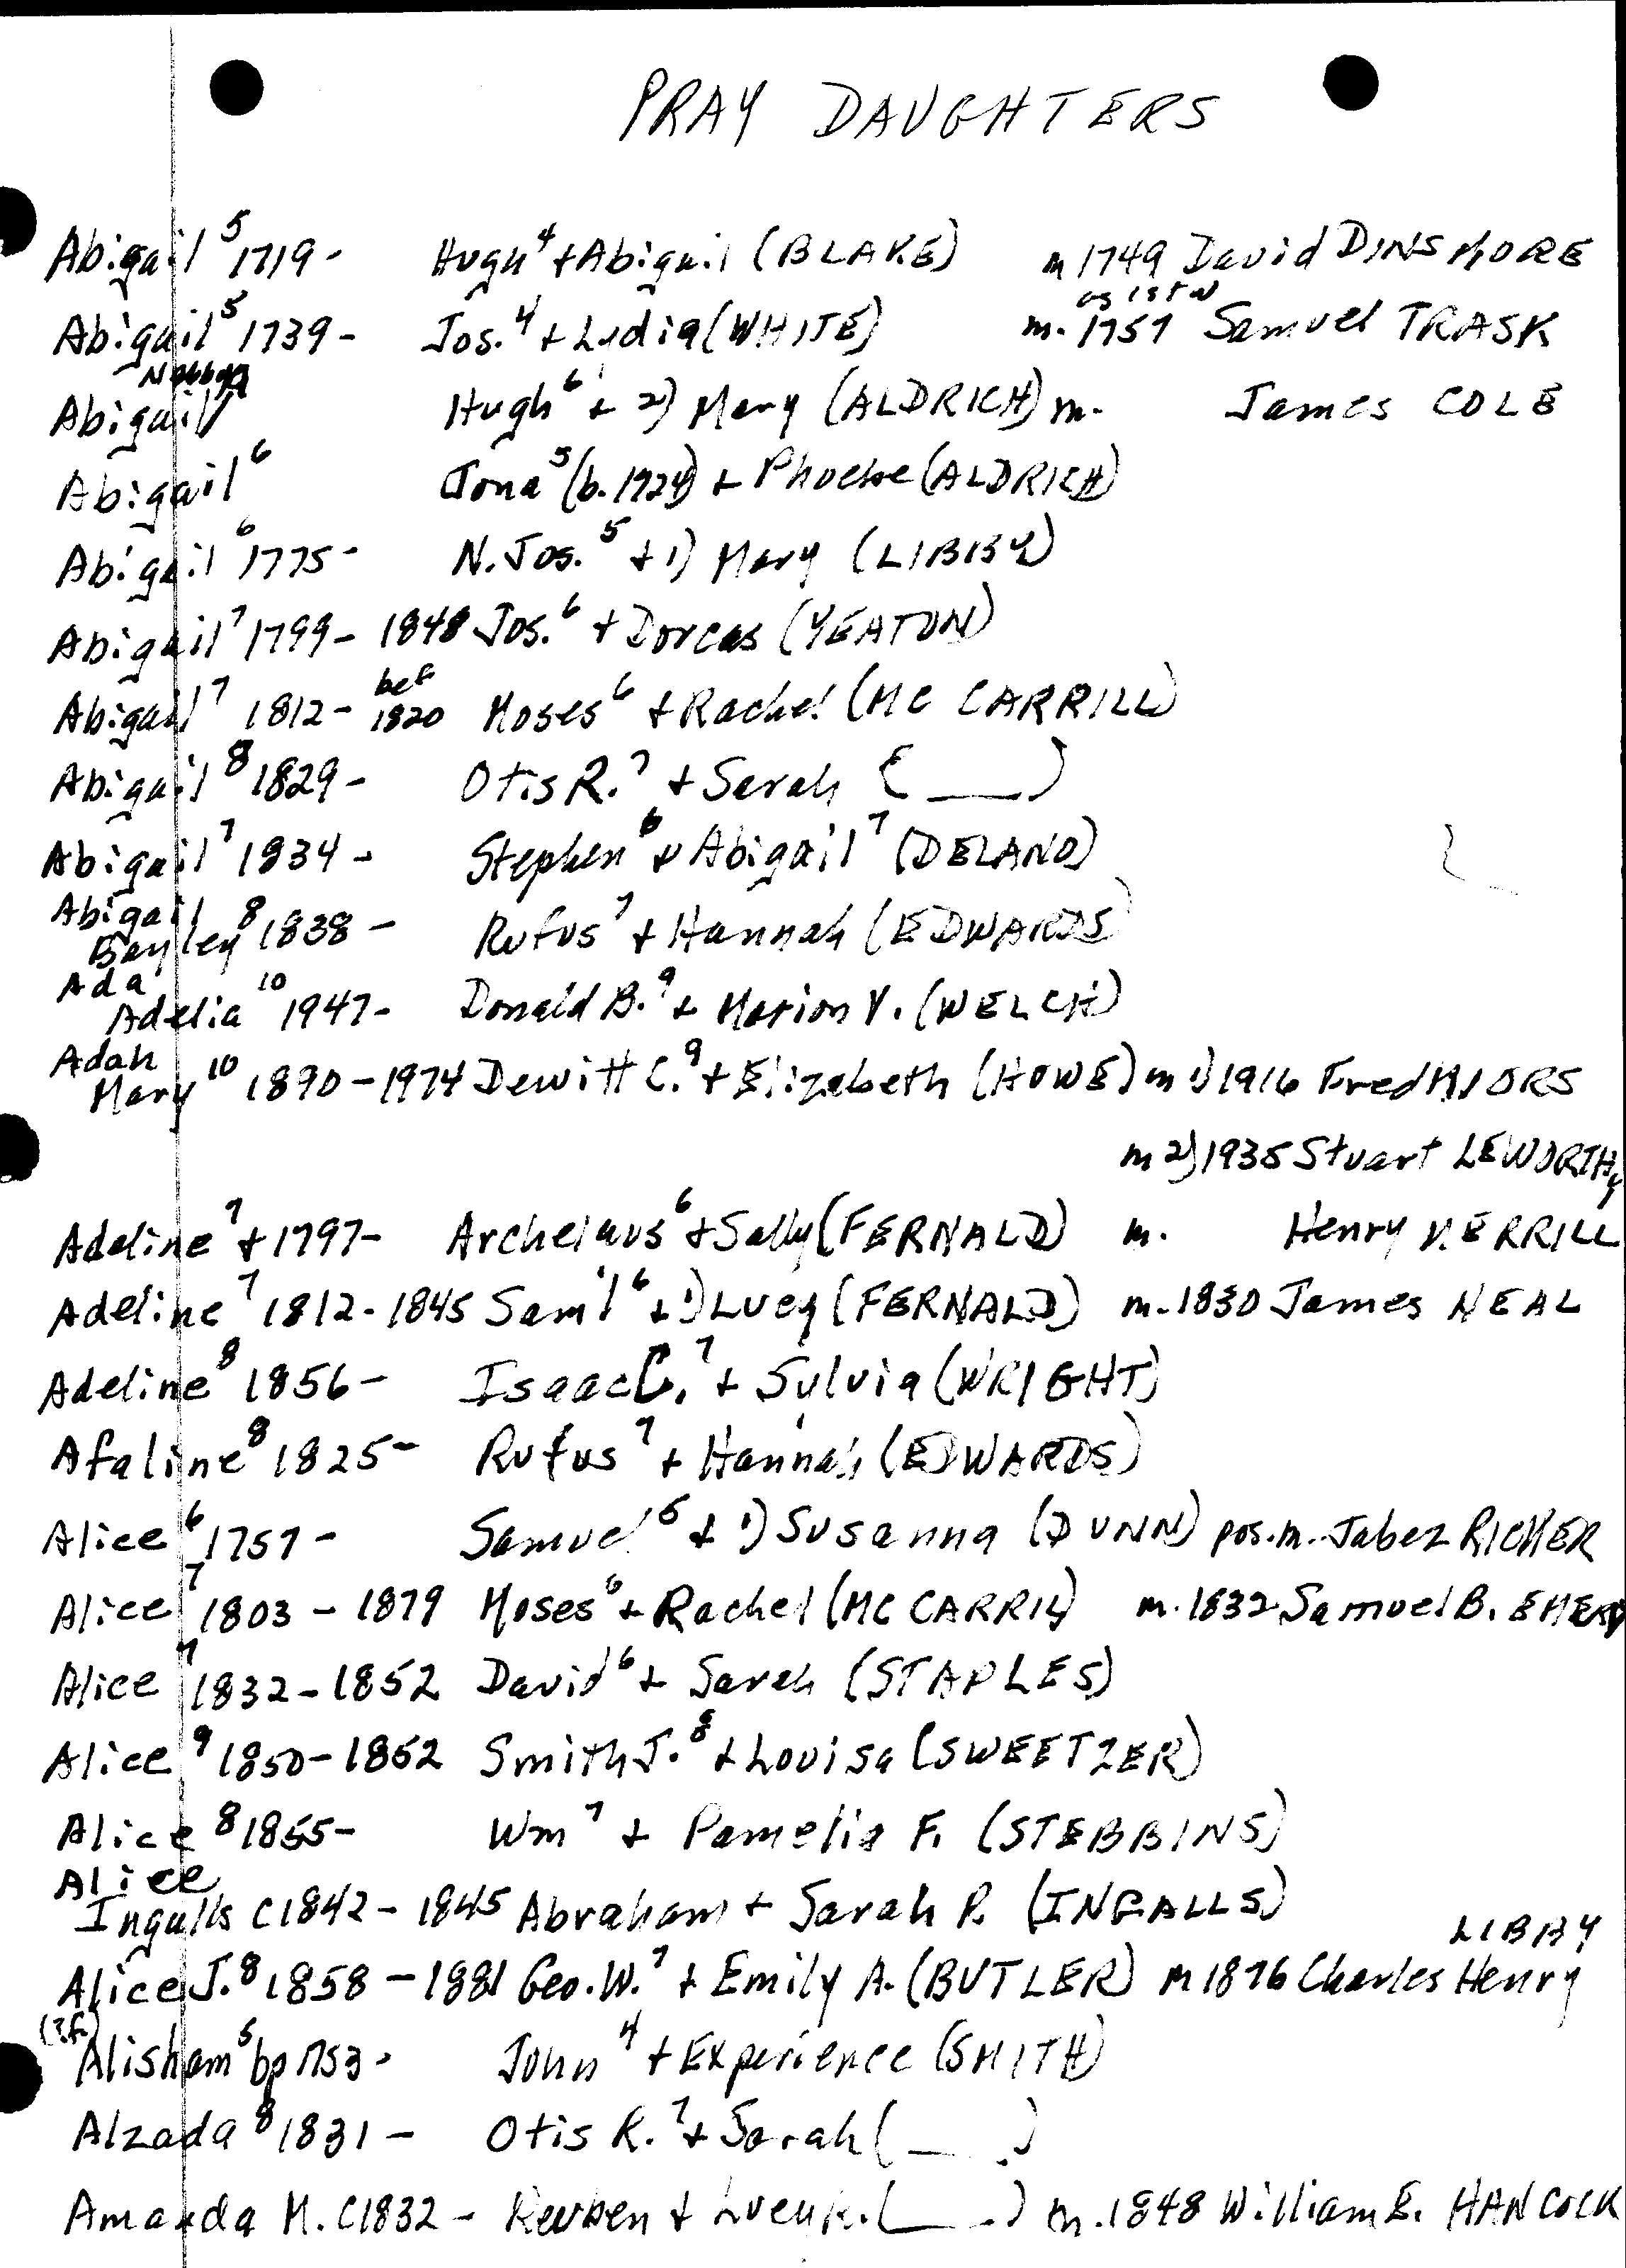 PRAY DAUGHTERS
Abigail⁵ 1719- Hugh⁴ + Abigail (BLAKE) m 1749 David DINSMORE
as 1st w
Abigail⁵ 1739- Jos.⁴ + Lydia (WHITE) m. 1757 Samuel TRASK
Abigail⁷ Hugh⁶ + 2) Mary (ALDRICH) m. James COLE
Abigail⁶ Jona⁵ (b. 1724) + Phoebe (ALDRICH)
Abigail⁶ 1775- N. Jos.⁵ + 1) Mary (LIBBY)
Abigail⁷ 1799- 1848 Jos.⁶ + Dorcas (YEATON)
Abigail⁷ 1812- bef 1820 Moses⁶ + Rachel (MC CARRILL)
Abigail⁸ 1829- Otis R.⁷ + Sarah (___)
Abigail⁷ 1834- Stephen⁶ + Abigail⁷ (DELAND)
Abigail
Bayley⁸ 1838- Rufus⁷ + Hannah (EDWARDS)
Ada
Adelia¹⁰ 1947- Donald B.⁹ + Marion V. (WELCH)
Adah
Mary¹⁰ 1890-1974 Dewitt C.⁹ + Elizabeth (HOWE) m 1) 1916 Fred MJORS
m 2) 1935 Stuart LEWORTHY
Adeline⁷ + 1797- Archelaus⁶ + Sally (FERNALD) m. Henry VERRILL
Adeline⁷ 1812-1845 Sam'l⁶ + 1) Lucy (FERNALD) m. 1830 James NEAL
Adeline⁸ 1856- Isaac C.⁷ + Sylvia (WRIGHT)
Afaline⁸ 1825- Rufus⁷ + Hannah (EDWARDS)
Alice⁶ 1757- Samuel⁵ + 1) Susanna (DUNN) pos. m. Jabez RICKER
Alice⁷ 1803-1879 Moses⁶ + Rachel (MC CARRIL) m. 1832 Samuel B. EMERY
Alice⁷ 1832-1852 David⁶ + Sarah (STAPLES)
Alice⁹ 1850-1852 Smith J.⁸ + Louisa (SWEETZER)
Alice⁸ 1855- Wm⁷ + Pamelia F. (STEBBINS)
Alice
Ingalls c1842-1845 Abraham + Sarah P. (INGALLS)
LIBBY
Alice J.⁸ 1858-1881 Geo. W.⁷ + Emily A. (BUTLER) m 1876 Charles Henry
(?f.)
Alisham⁵ bp 1753- John⁴ + Experience (SMITH)
Alzada⁸ 1831- Otis R.⁷ + Sarah (__)
Amanda M. c1832- Reuben + (___) m. 1848 William E. HANCOCK